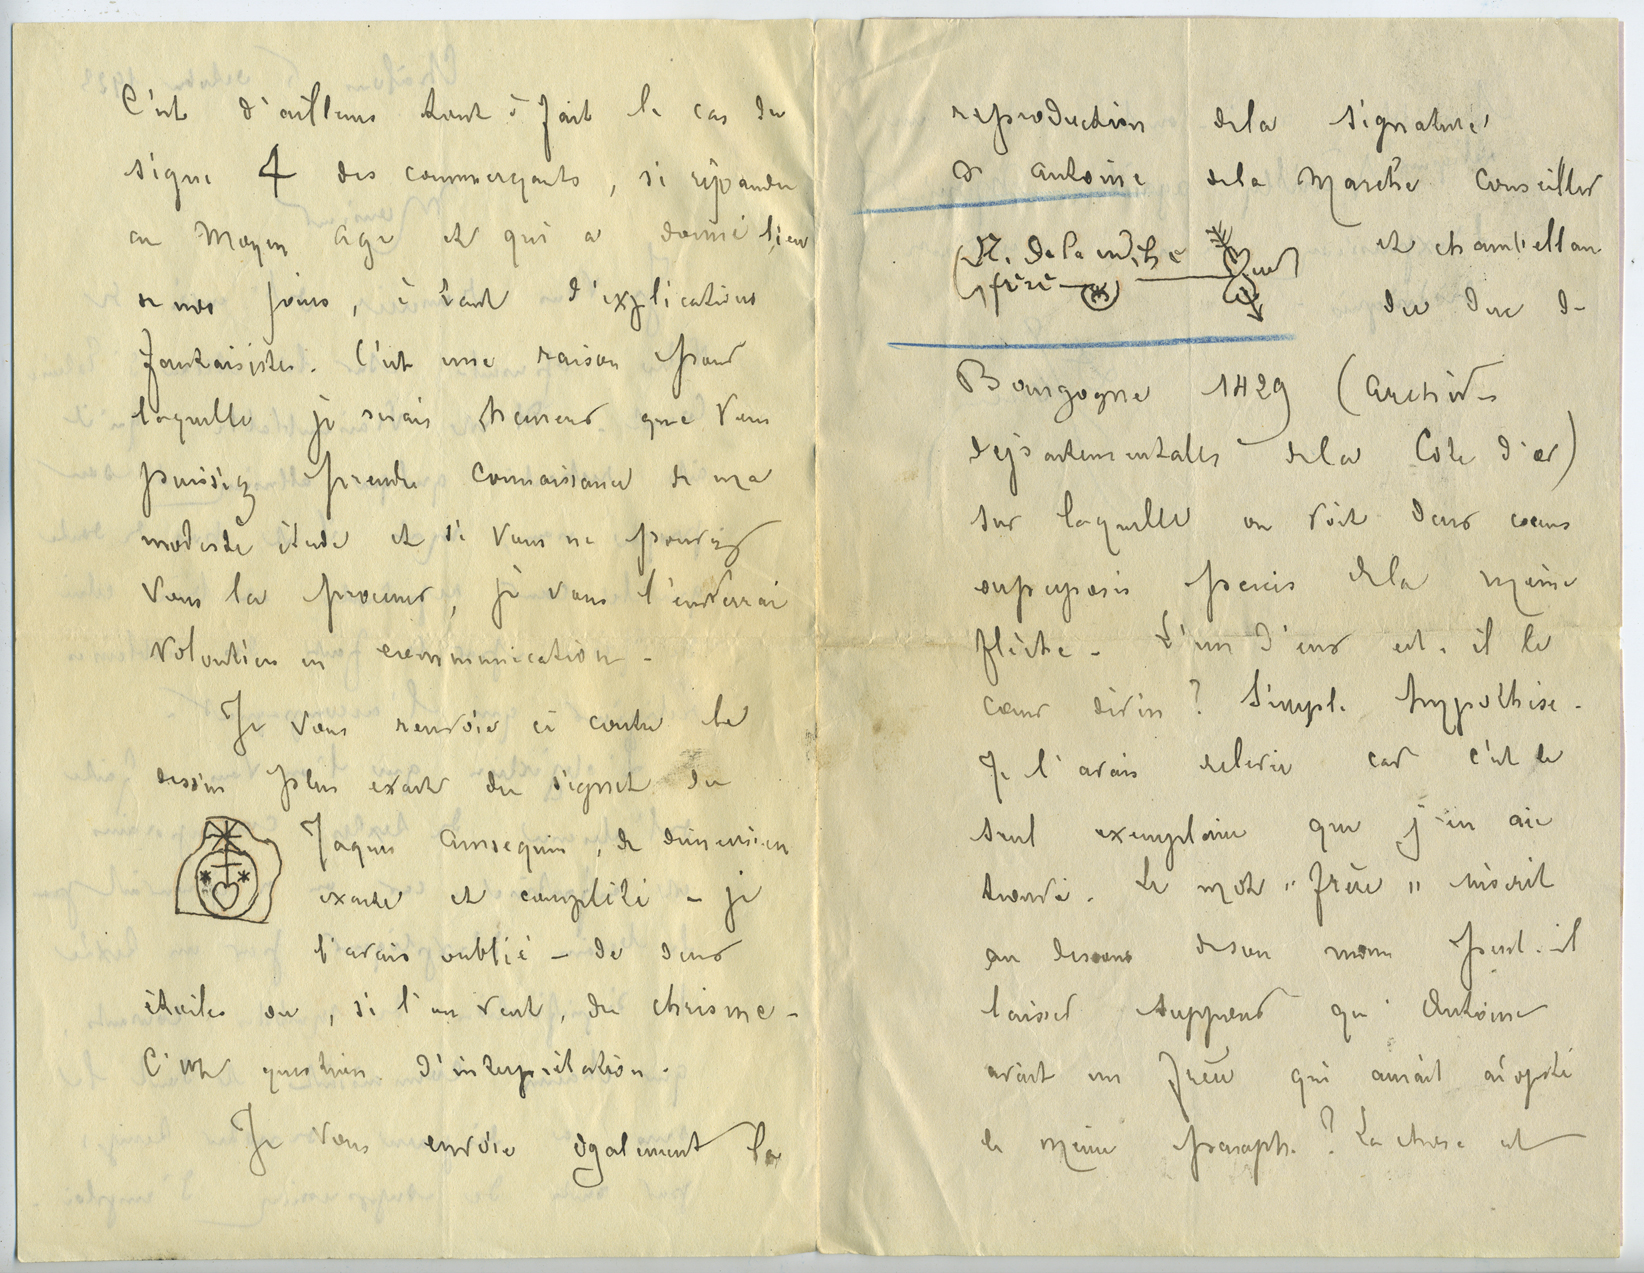 C'est d'ailleurs tout à fait le cas du
signe 4 des commerçants, si répandu
au Moyen age et qui a donné lieu
de nos jours, à tant d'explications
fantaisistes. C'est une raison pour
laquelle je serais heureux que vous
puissiez prendre connaissance de ma
modeste étude et si vous ne pouviez
vous la procurer, je vous l'enverrai
volontiers en communication -
Je vous renvoie ci contre le
dessin plus exact du signet de
Jaques Ansequin, de dimension
exacte et complété - je
l'avais oublié - de deux
étoiles ou, si l'on veut, du chrisme -
C'est question d'interprétation.
Je vous envoie également la
reproduction dela signature
de Antoine dela Marche Conseiller
et chambellan
A. de la marche
frère
du Duc de
Bourgogne 1429 (Archives
départementales dela Côte d'or)
sur laquelle on voit deux coeurs
superposés percés dela même
flèche - L'un d'eux est-il le
coeur divin ? Simple hypothèse -
Je l'avais relevée car c'est le
seul exemplaire que j'en aie
trouvé. Le mot "frère" inscrit
au dessous deson nom peut-il
laisser supposer qu'Antoine
avait un frère qui aurait adopté
le même paraphe ? La chose est